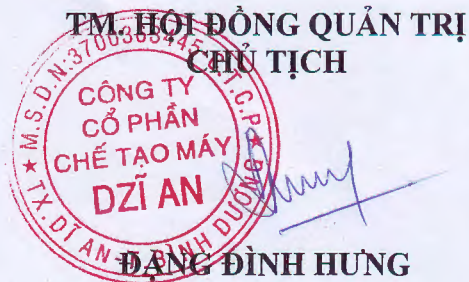 TM. HỘI ĐỒNG QUẢN TRỊ
CHỦ TỊCH
CÔNG TY
CỔ PHẦN
CHẾ TẠO MÁY
DZĨ AN
TX. DĨ AN - T. BÌNH DƯƠNG
ĐẶNG ĐÌNH HƯNG